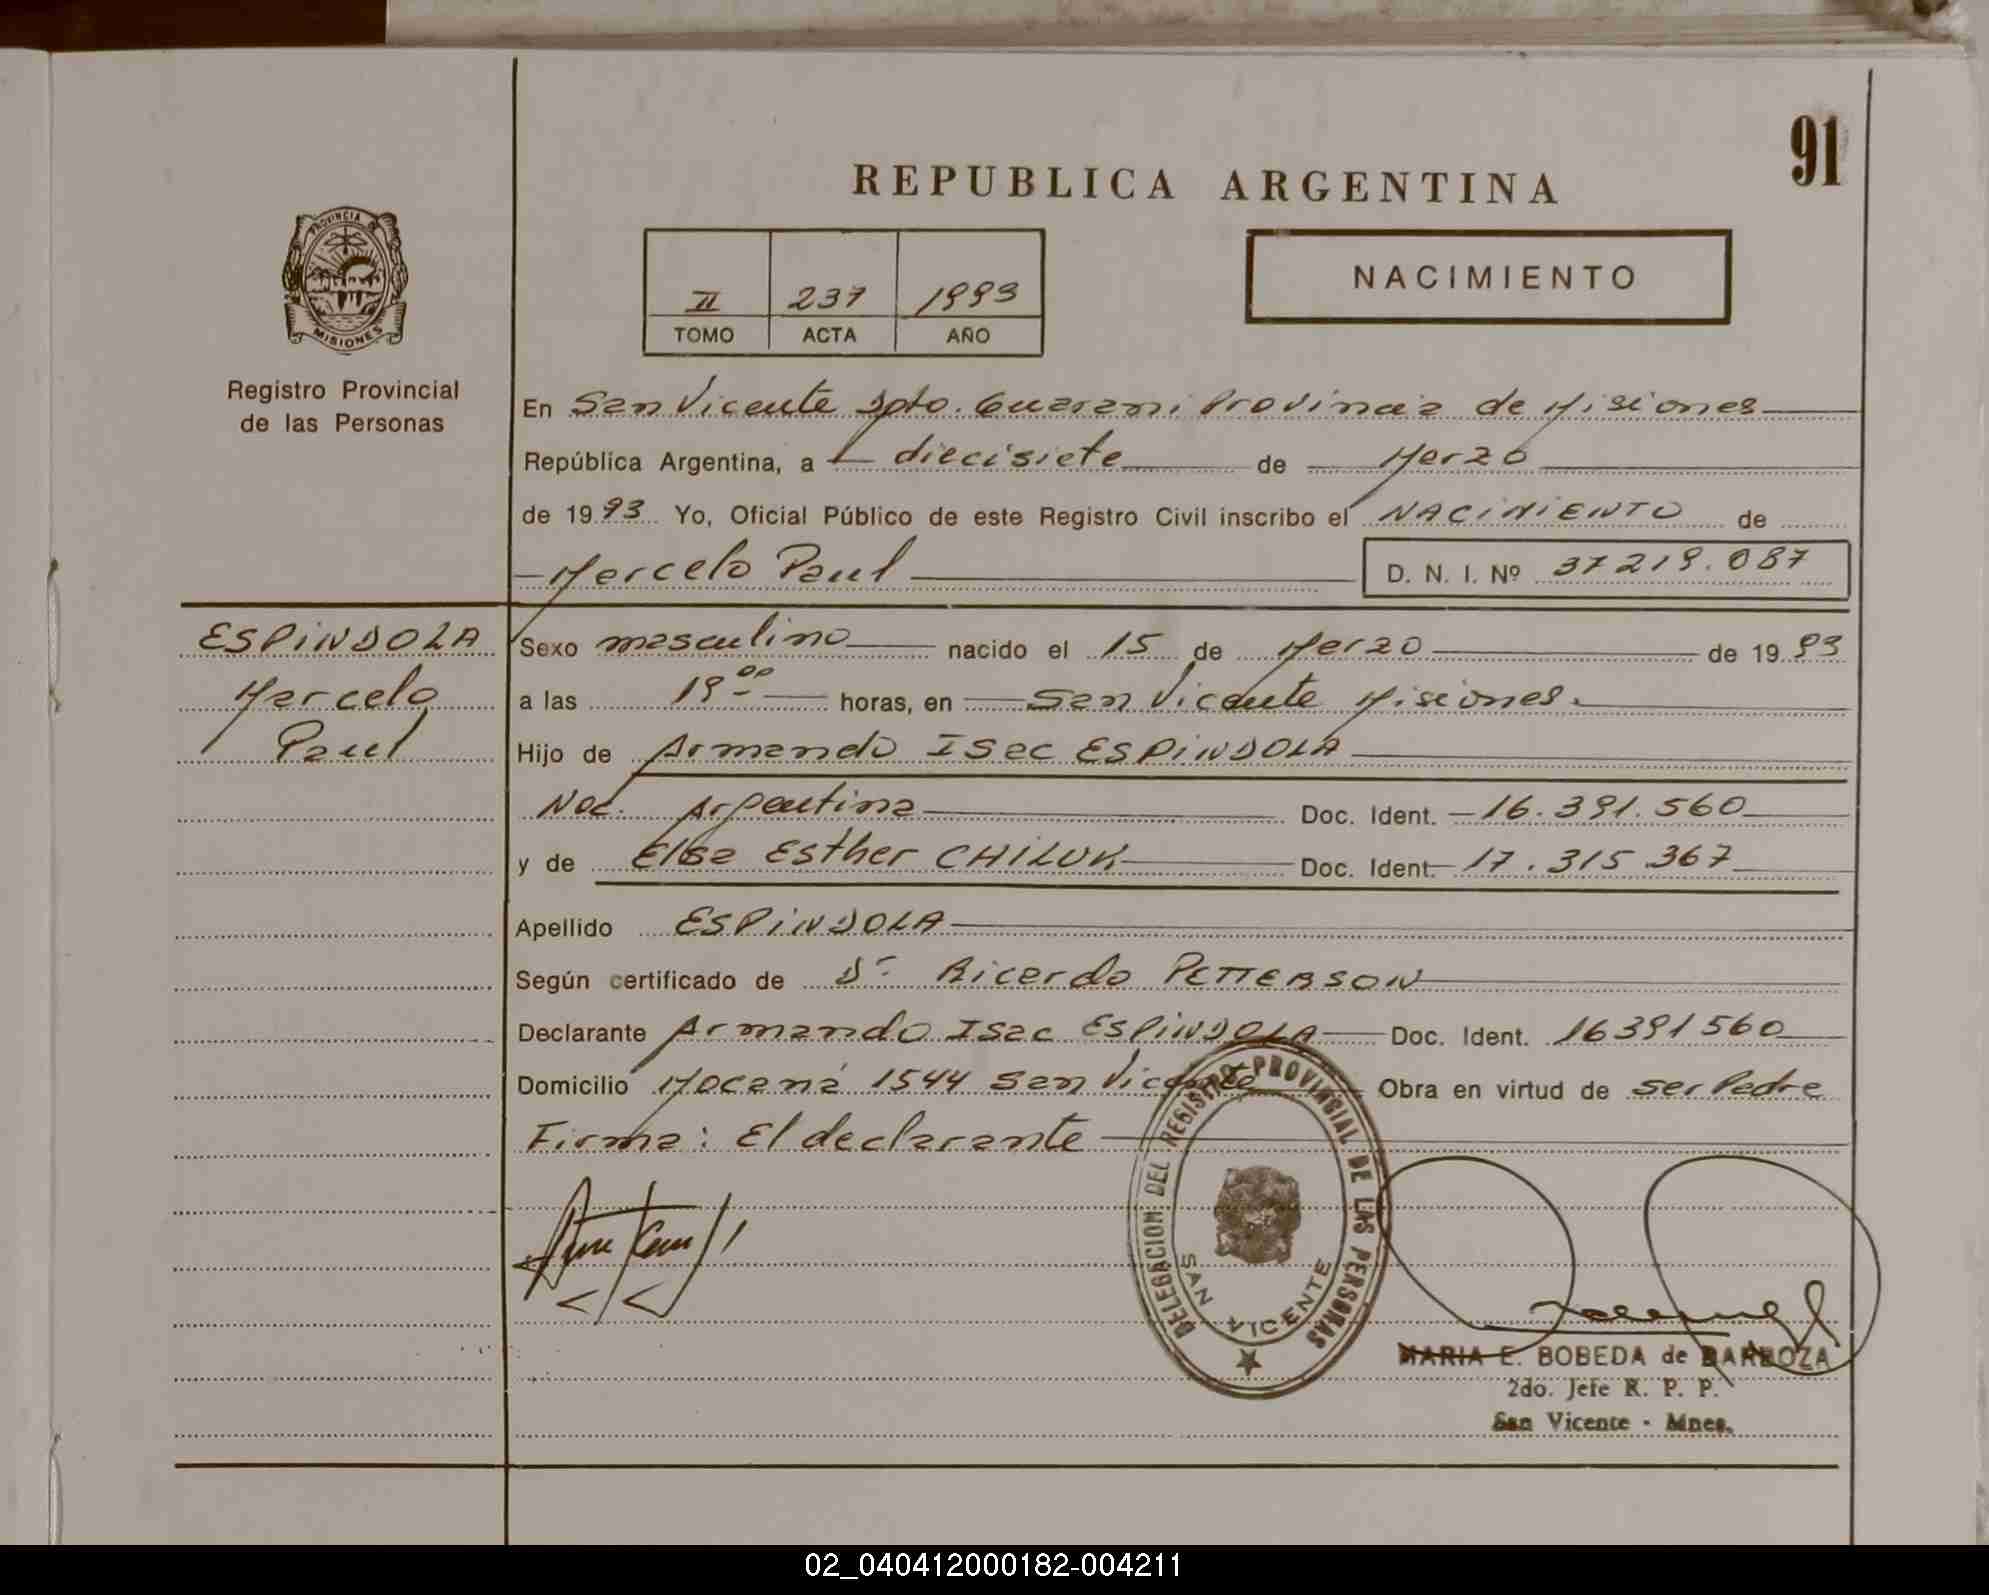 91
REPUBLICA ARGENTINA
PROVINCIA
MISIONES
Registro Provincial
de las Personas
II 237 1993
TOMO ACTA AÑO
NACIMIENTO
En San Vicente Dpto. Guarani Provincia de Misiones
República Argentina, a diecisiete de Marzo
de 1993 Yo, Oficial Público de este Registro Civil inscribo el NACIMIENTO de
Marcelo Paul D. N. I. Nº 37219.087
ESPINDOLA
Marcelo
Paul
Sexo masculino nacido el 15 de Marzo de 1993
a las 19 00 horas, en San Vicente Misiones.
Hijo de Armando Isac ESPINDOLA
Nac. Argentina Doc. Ident. 16.391.560
y de Elsa Esther CHILUK Doc. Ident. 17.315.367
Apellido ESPINDOLA
Según certificado de Dr Ricardo PETTERSON
Declarante Armando Isac ESPINDOLA Doc. Ident. 16391560
Domicilio Mocaná 1544 San Vicente Obra en virtud de ser Padre
Firma: El declarante
DELEGACION DEL REGISTRO PROVINCIAL DE LAS PERSONAS
SAN VICENTE
MARIA E. BOBEDA de BARBOZA
2do. Jefe R. P. P.
San Vicente - Mnes.
02_040412000182-004211